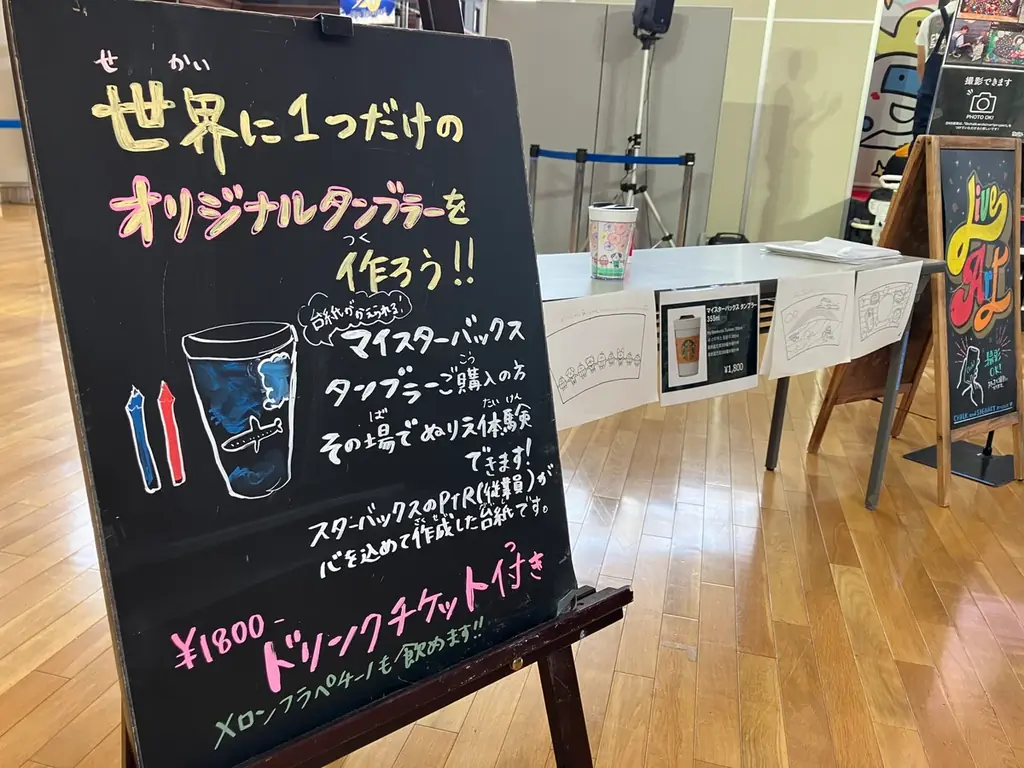 せ かい
世界に1つだけの
オリジナルタンブラーを
つく
作ろう!!
台紙がかえられる!
マイスターバックス
こう
タンブラーご購入の方
ば たいけん
その場でぬりえ体験
できます!
スターバックスのPTR(従業員)が
心を込めて作成した台紙です。
¥1800-
ドリンクチケット付き
メロンフラペチーノも飲めます!!
マイスターバックス タンブラー
355ml
¥1,800
撮影できます
PHOTO OK!
Live
Art
撮影
OK!